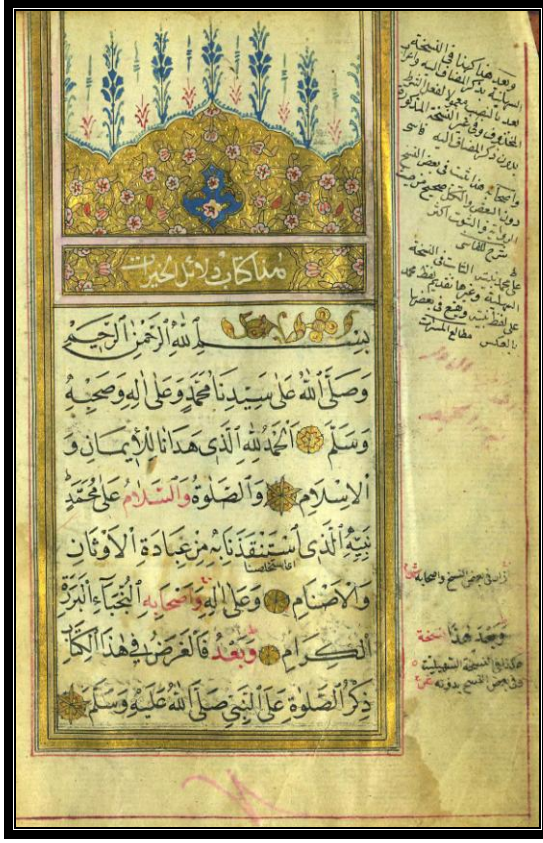 هذا كتاب دلائل الخيرات
بِسْمِ اللهِ الرَّحْمٰنِ الرَّحِيمِ
وَصَلَّى اللهُ عَلٰى سَيِّدِنَا مُحَمَّدٍ وَعَلٰى اٰلِهِ وَصَحْبِهِ
وَسَلَّمَ اَلْحَمْدُ لِلّٰهِ الَّذِى هَدَانَا لِلْاِيمَانِ وَ
الْاِسْلَامِ وَالصَّلٰوةُ وَالسَّلَامُ عَلٰى مُحَمَّدٍ
نَبِيِّهِ الَّذِى اسْتَنْقَذَنَا بِهِ مِنْ عِبَادَةِ الْاَوْثَانِ
وَالْاَصْنَامِ وَعَلٰى اٰلِهِ وَاَصْحَابِهِ النُّجَبَاءِ الْبَرَرَةِ
الْكِرَامِ وَبَعْدُ فَالْغَرَضُ فِى هٰذَا الْكِتَابِ
ذِكْرُ الصَّلٰوةِ عَلَى النَّبِيِّ صَلَّى اللهُ عَلَيْهِ وَسَلَّمَ
وبعد هذا كذا فى النسخة
السهلية بذكر المضاف اليه
المحذوف وفى غير النسخة المذكورة
بدون ذكر المضاف اليه فاسى
واصحابه هذا ثبت فى بعض النسخ
دون البعض والكل صحيح من حيث
الرواية والثبوت اكثر
شرح للفاسى
على محمد نبيه الثابت فى النسخة
السهلية وغيرها تقديم لفظ محمد
على لفظ نبيه ووقع فى بعضها
بالعكس مطالع المسرات
زاد فى بعض النسخ واصحابه
وَبَعْدَ هٰذَا نسخة
هكذا فى النسخة السهيلية
وفى بعض النسخ بدونه